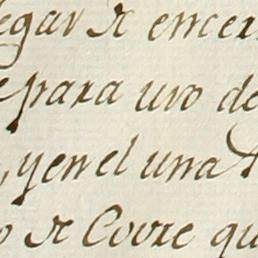 egar de encer
para uso de
, y en el una
o de Covre qu